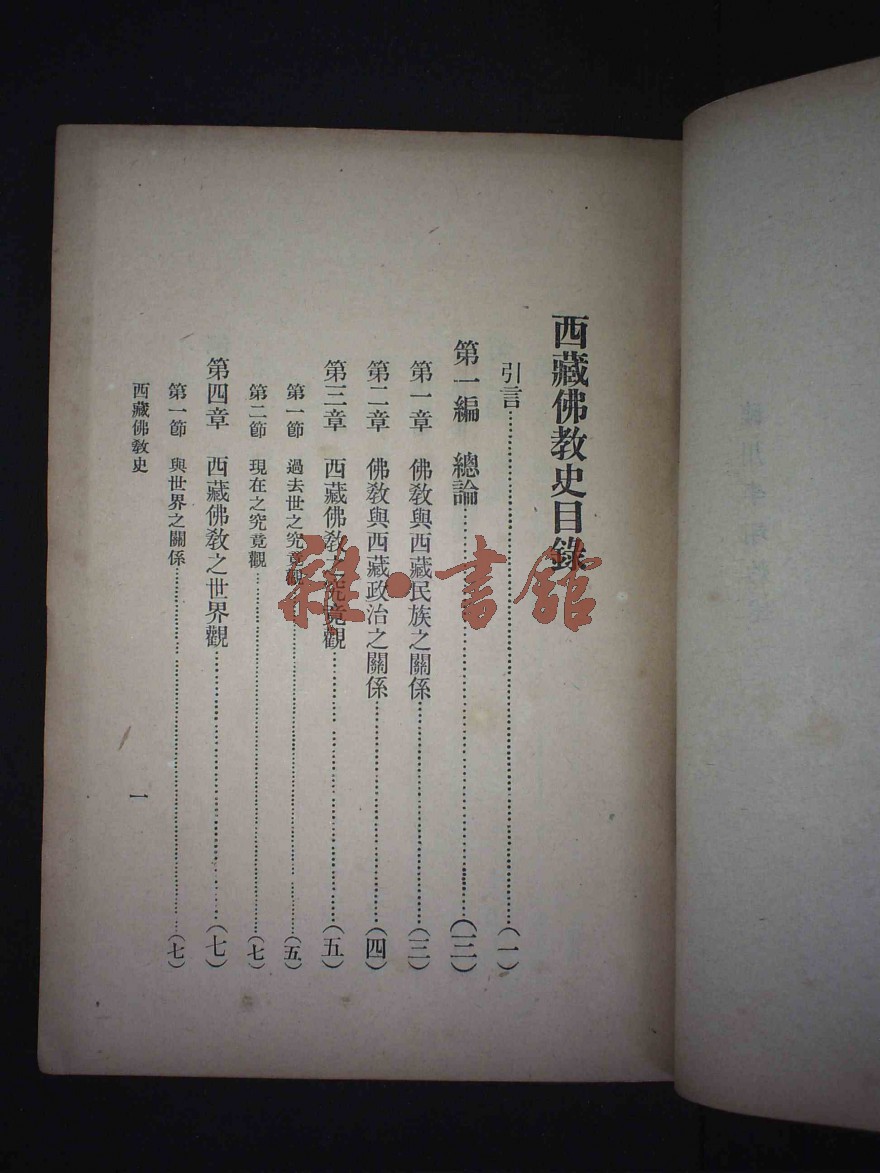 西藏佛教史目錄
引言……(一)
第一編　總論……(三)
第一章　佛教與西藏民族之關係……(三)
第二章　佛教與西藏政治之關係……(四)
第三章　西藏佛教之究竟觀……(五)
第一節　過去世之究竟觀……(五)
第二節　現在之究竟觀……(七)
第四章　西藏佛教之世界觀……(七)
第一節　與世界之關係……(七)
西藏佛教史
一
雜·書館